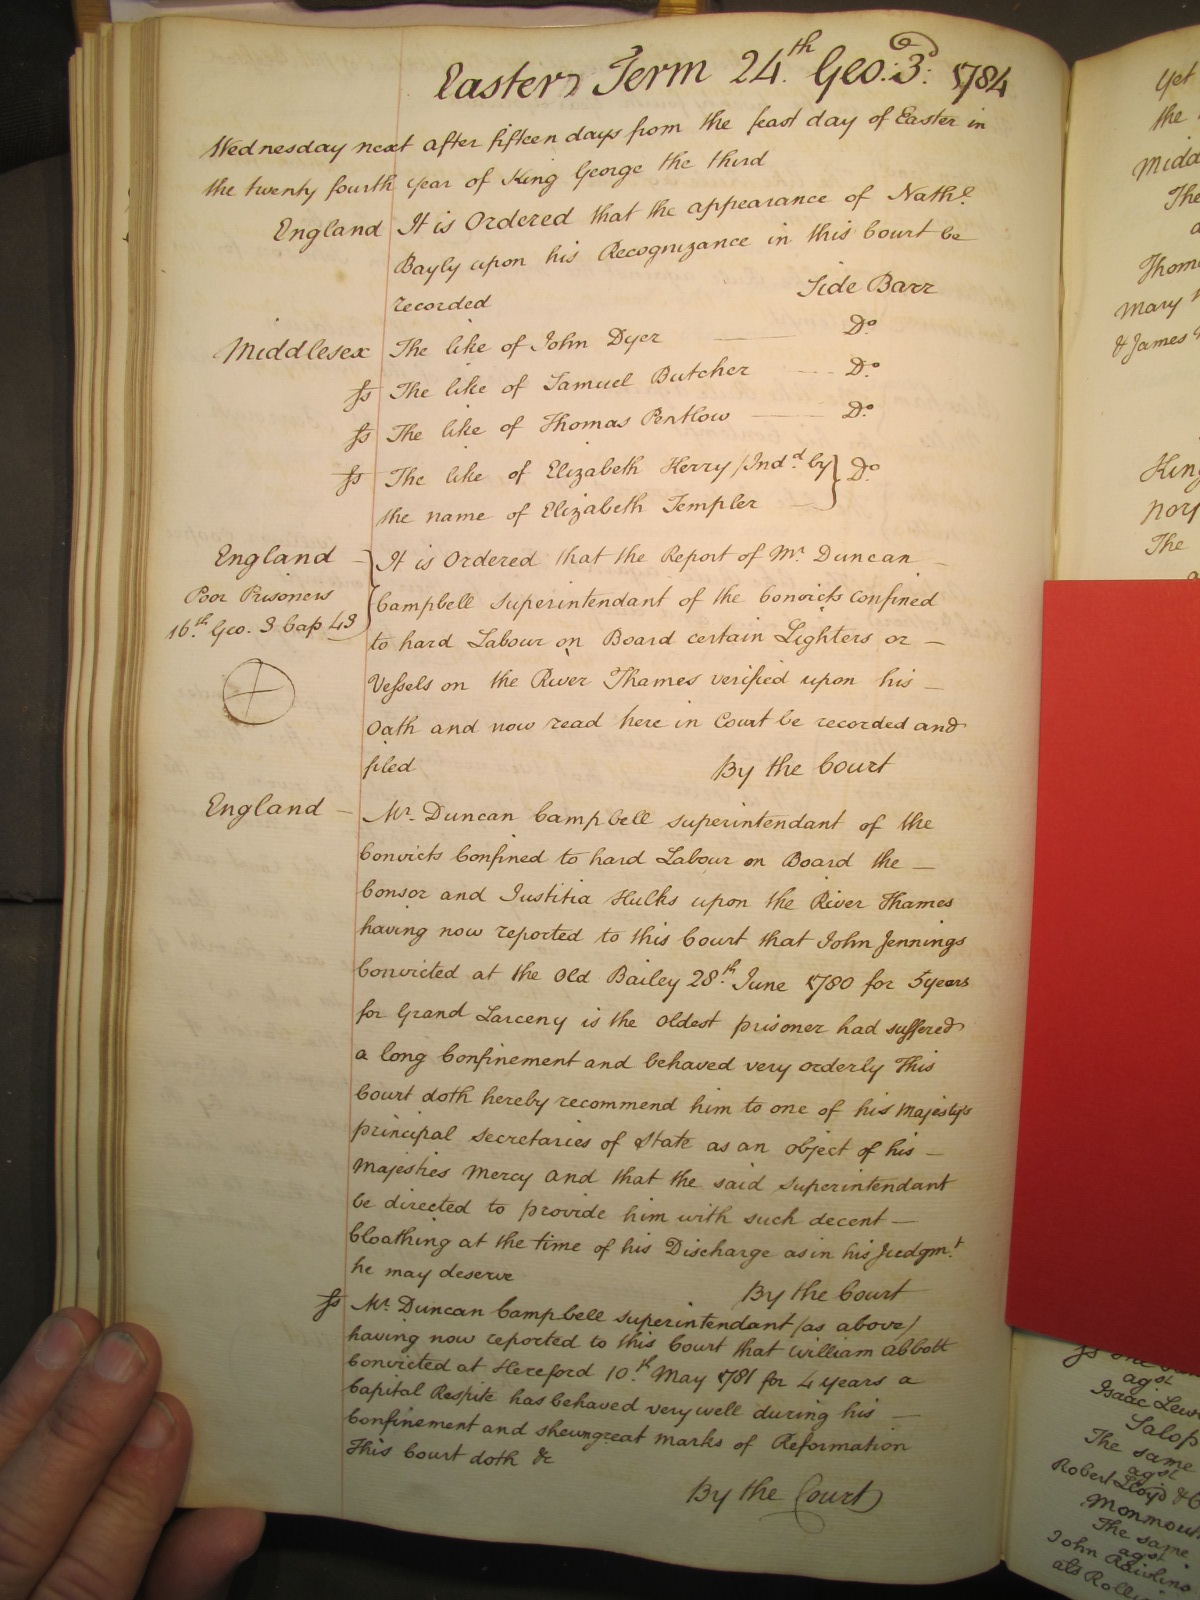 Easter Term 24.th Geo: 3: 1784
Wednesday next after fifteen days from the feast day of Easter in
the twenty fourth year of King George the third
England It is Ordered that the appearance of Nath.l
Bayly upon his Recognizance in this Court be
recorded Side Barr
Middlesex The like of John Dyer Do
ss The like of Samuel Butcher Do
ss The like of Thomas Pentlow Do
ss The like of Elizabeth Herry /Ind.d by } Do
the name of Elizabeth Templer
England It is Ordered that the Report of Mr. Duncan
Poor Prisoners Campbell Superintendant of the Convicts confined
16.th Geo. 3 Cap 43 to hard Labour on Board certain Lighters or
Vessels on the River Thames verified upon his
Oath and now read here in Court be recorded and
filed By the Court
England Mr. Duncan Campbell superintendant of the
Convicts Confined to hard Labour on Board the
Censor and Justitia Hulks upon the River Thames
having now reported to this Court that John Jennings
Convicted at the Old Bailey 28.th June 1780 for 5 years
for Grand Larceny is the oldest prisoner had suffered
a long Confinement and behaved very orderly This
Court doth hereby recommend him to one of his Majesty's
principal Secretaries of State as an object of his
Majesties Mercy and that the said Superintendant
be directed to provide him with such decent
Cloathing at the time of his Discharge as in his Judgm.t
he may deserve By the Court
ss Mr. Duncan Campbell superintendant /as above/
having now reported to this Court that William Abbott
Convicted at Hereford 10.th May 1781 for 4 years a
Capital Respite has behaved very well during his
Confinement and shewn great marks of Reformation
This Court doth &c
By the Court
Yet
the
Midd
The
Thom
Mary
& James
King
Norf
The
ss
agst
Isaac Lew
Salop
The same
agst
Robert Lloyd & 
Monmou
The same
agst
John Rawlins
als Roll